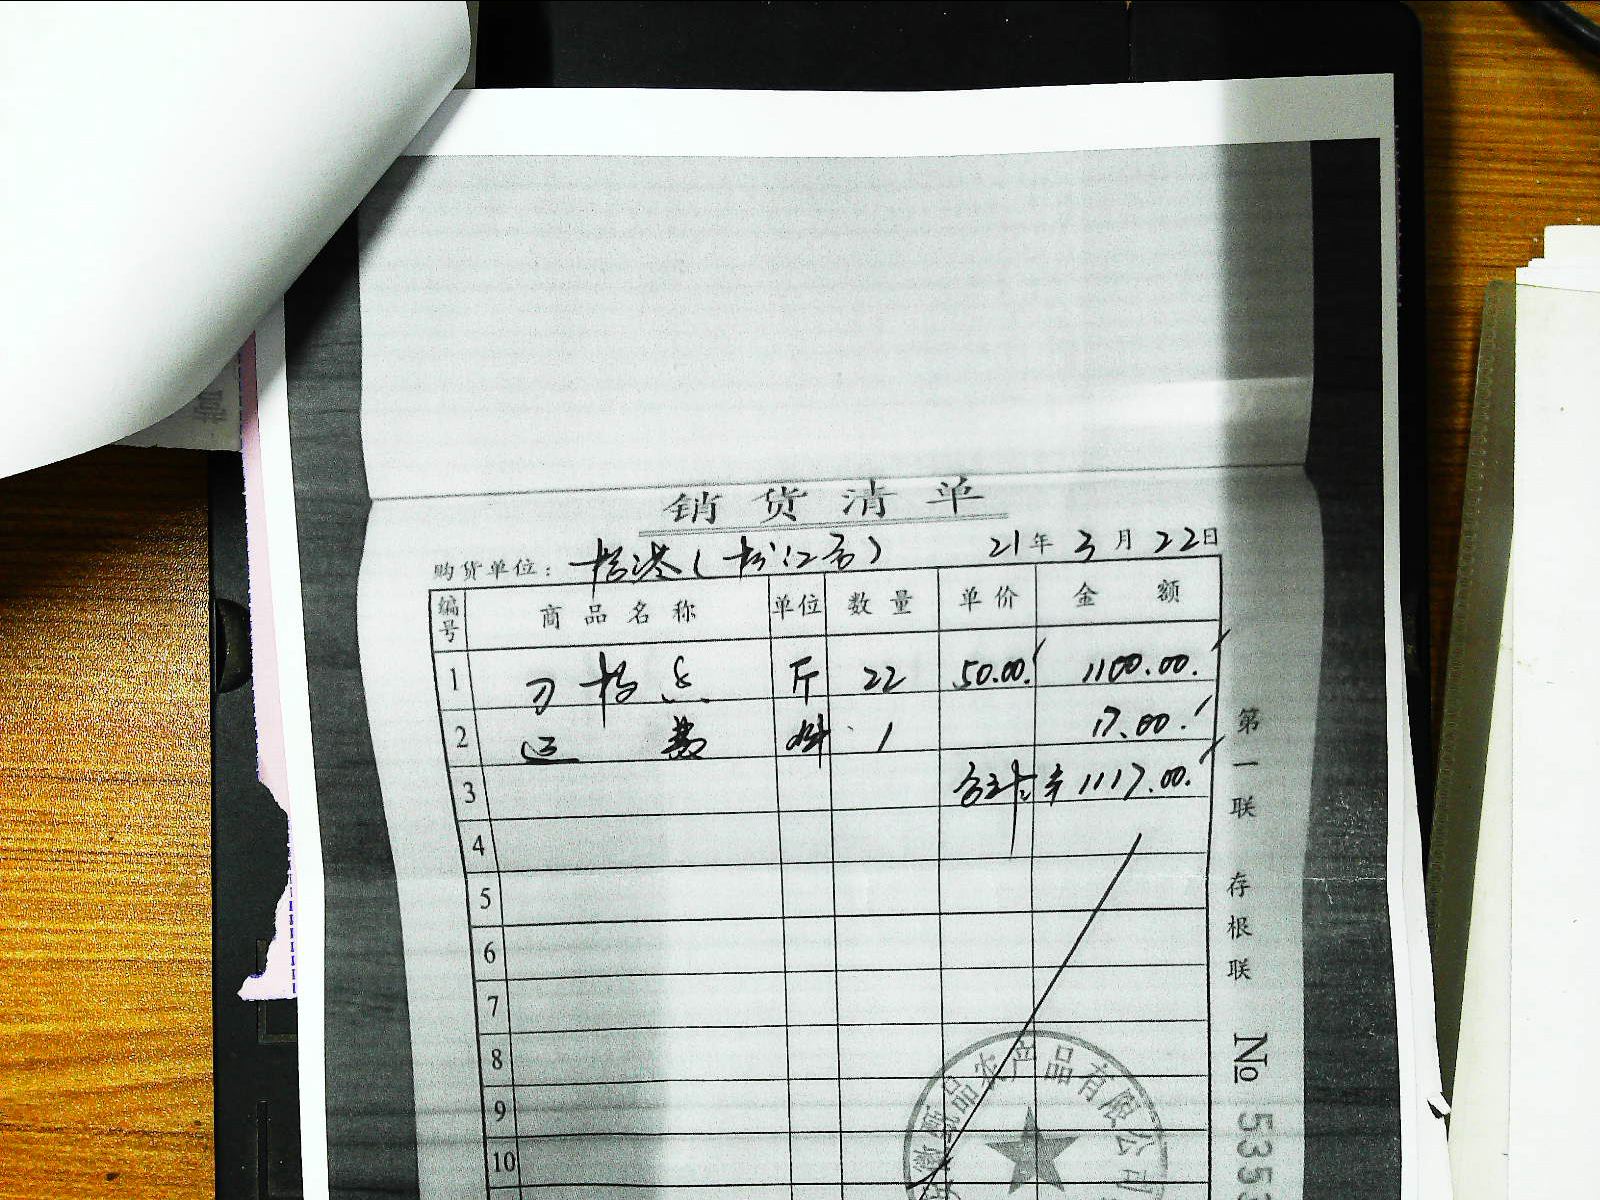 销货清单
购货单位： 21年3月22日
编号 商品名称 单位 数量 单价 金额
1 斤 22 50.00 1100.00
2 运费 件 1 17.00
3 合计 1117.00
4
5
6
7
8
9
10
第一联 存根联
№ 5353
徽皖品农产品有限公司